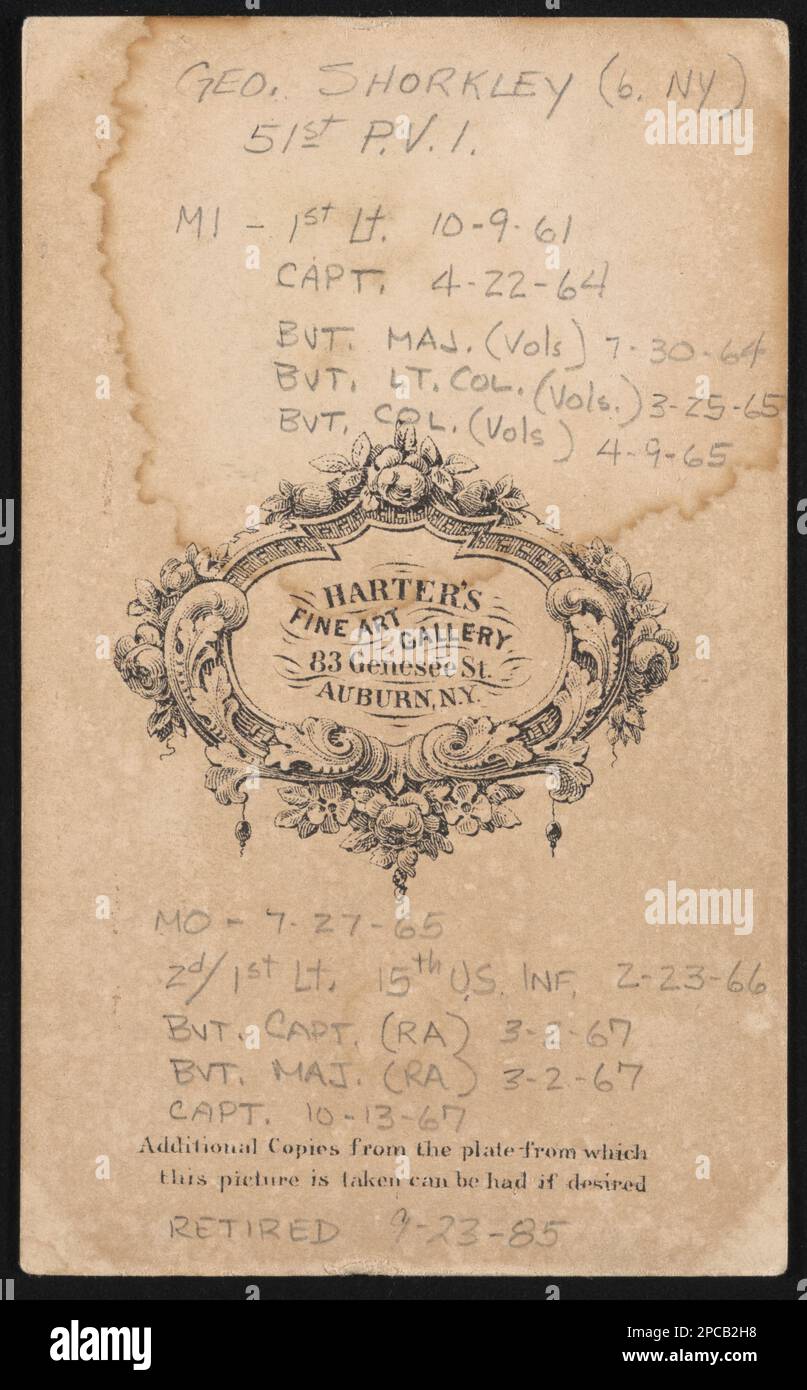 GEO. SHORKLEY (b. NY)
51st P.V.I.
MI - 1st Lt. 10-9-61
CAPT. 4-22-64
BVT. MAJ. (Vols) 7-30-64
BVT. LT. COL. (Vols.) 3-25-65
BVT. COL. (Vols) 4-9-65
HARTER'S
FINE ART GALLERY
83 Genesee St.
AUBURN, N.Y.
MO - 7-27-65
2d/1st Lt. 15th U.S. INF. 2-23-66
BVT. CAPT. (RA) 3-2-67
BVT. MAJ. (RA) 3-2-67
CAPT. 10-13-67
Additional Copies from the plate from which
this picture is taken can be had if desired
RETIRED 9-23-85
alamy
alamy
a
a
a
a
a
a
alamy
Image ID: 2PCB2H8
www.alamy.com